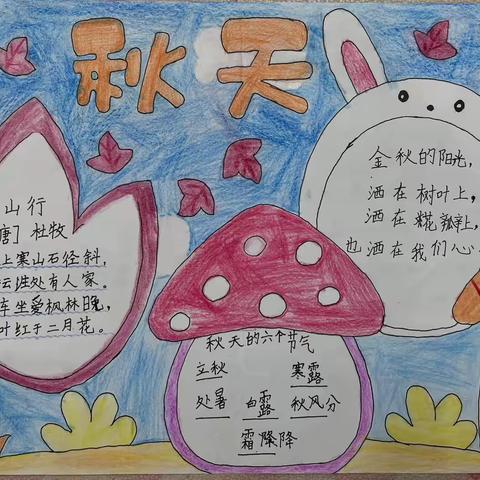 秋天
山行
唐］杜牧
上寒山石径斜，
云生处有人家。
车坐爱枫林晚，
叶红于二月花。
金秋的阳光，
洒在树叶上，
洒在花瓣上，
也洒在我们心
秋天的六个节气
立秋 寒露
处暑 白露 秋风分
霜降降